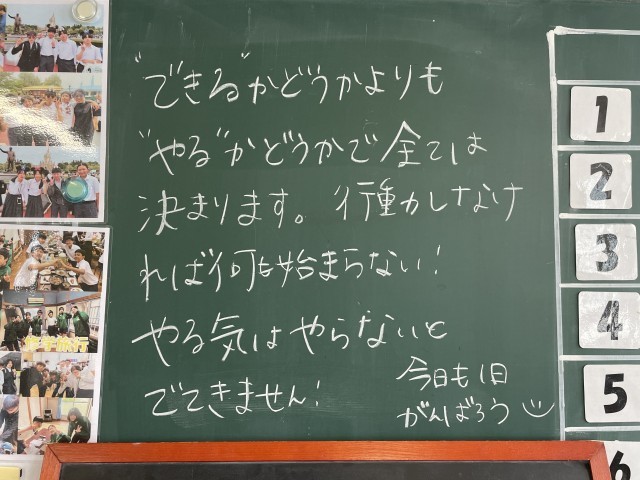 "できる"かどうかよりも
"やる"かどうかで全ては
決まります。行動しなけ
れば何も始まらない!
やる気はやらないと
でてきません!
今日も1日
がんばろう
1
2
3
4
5
6
修学旅行